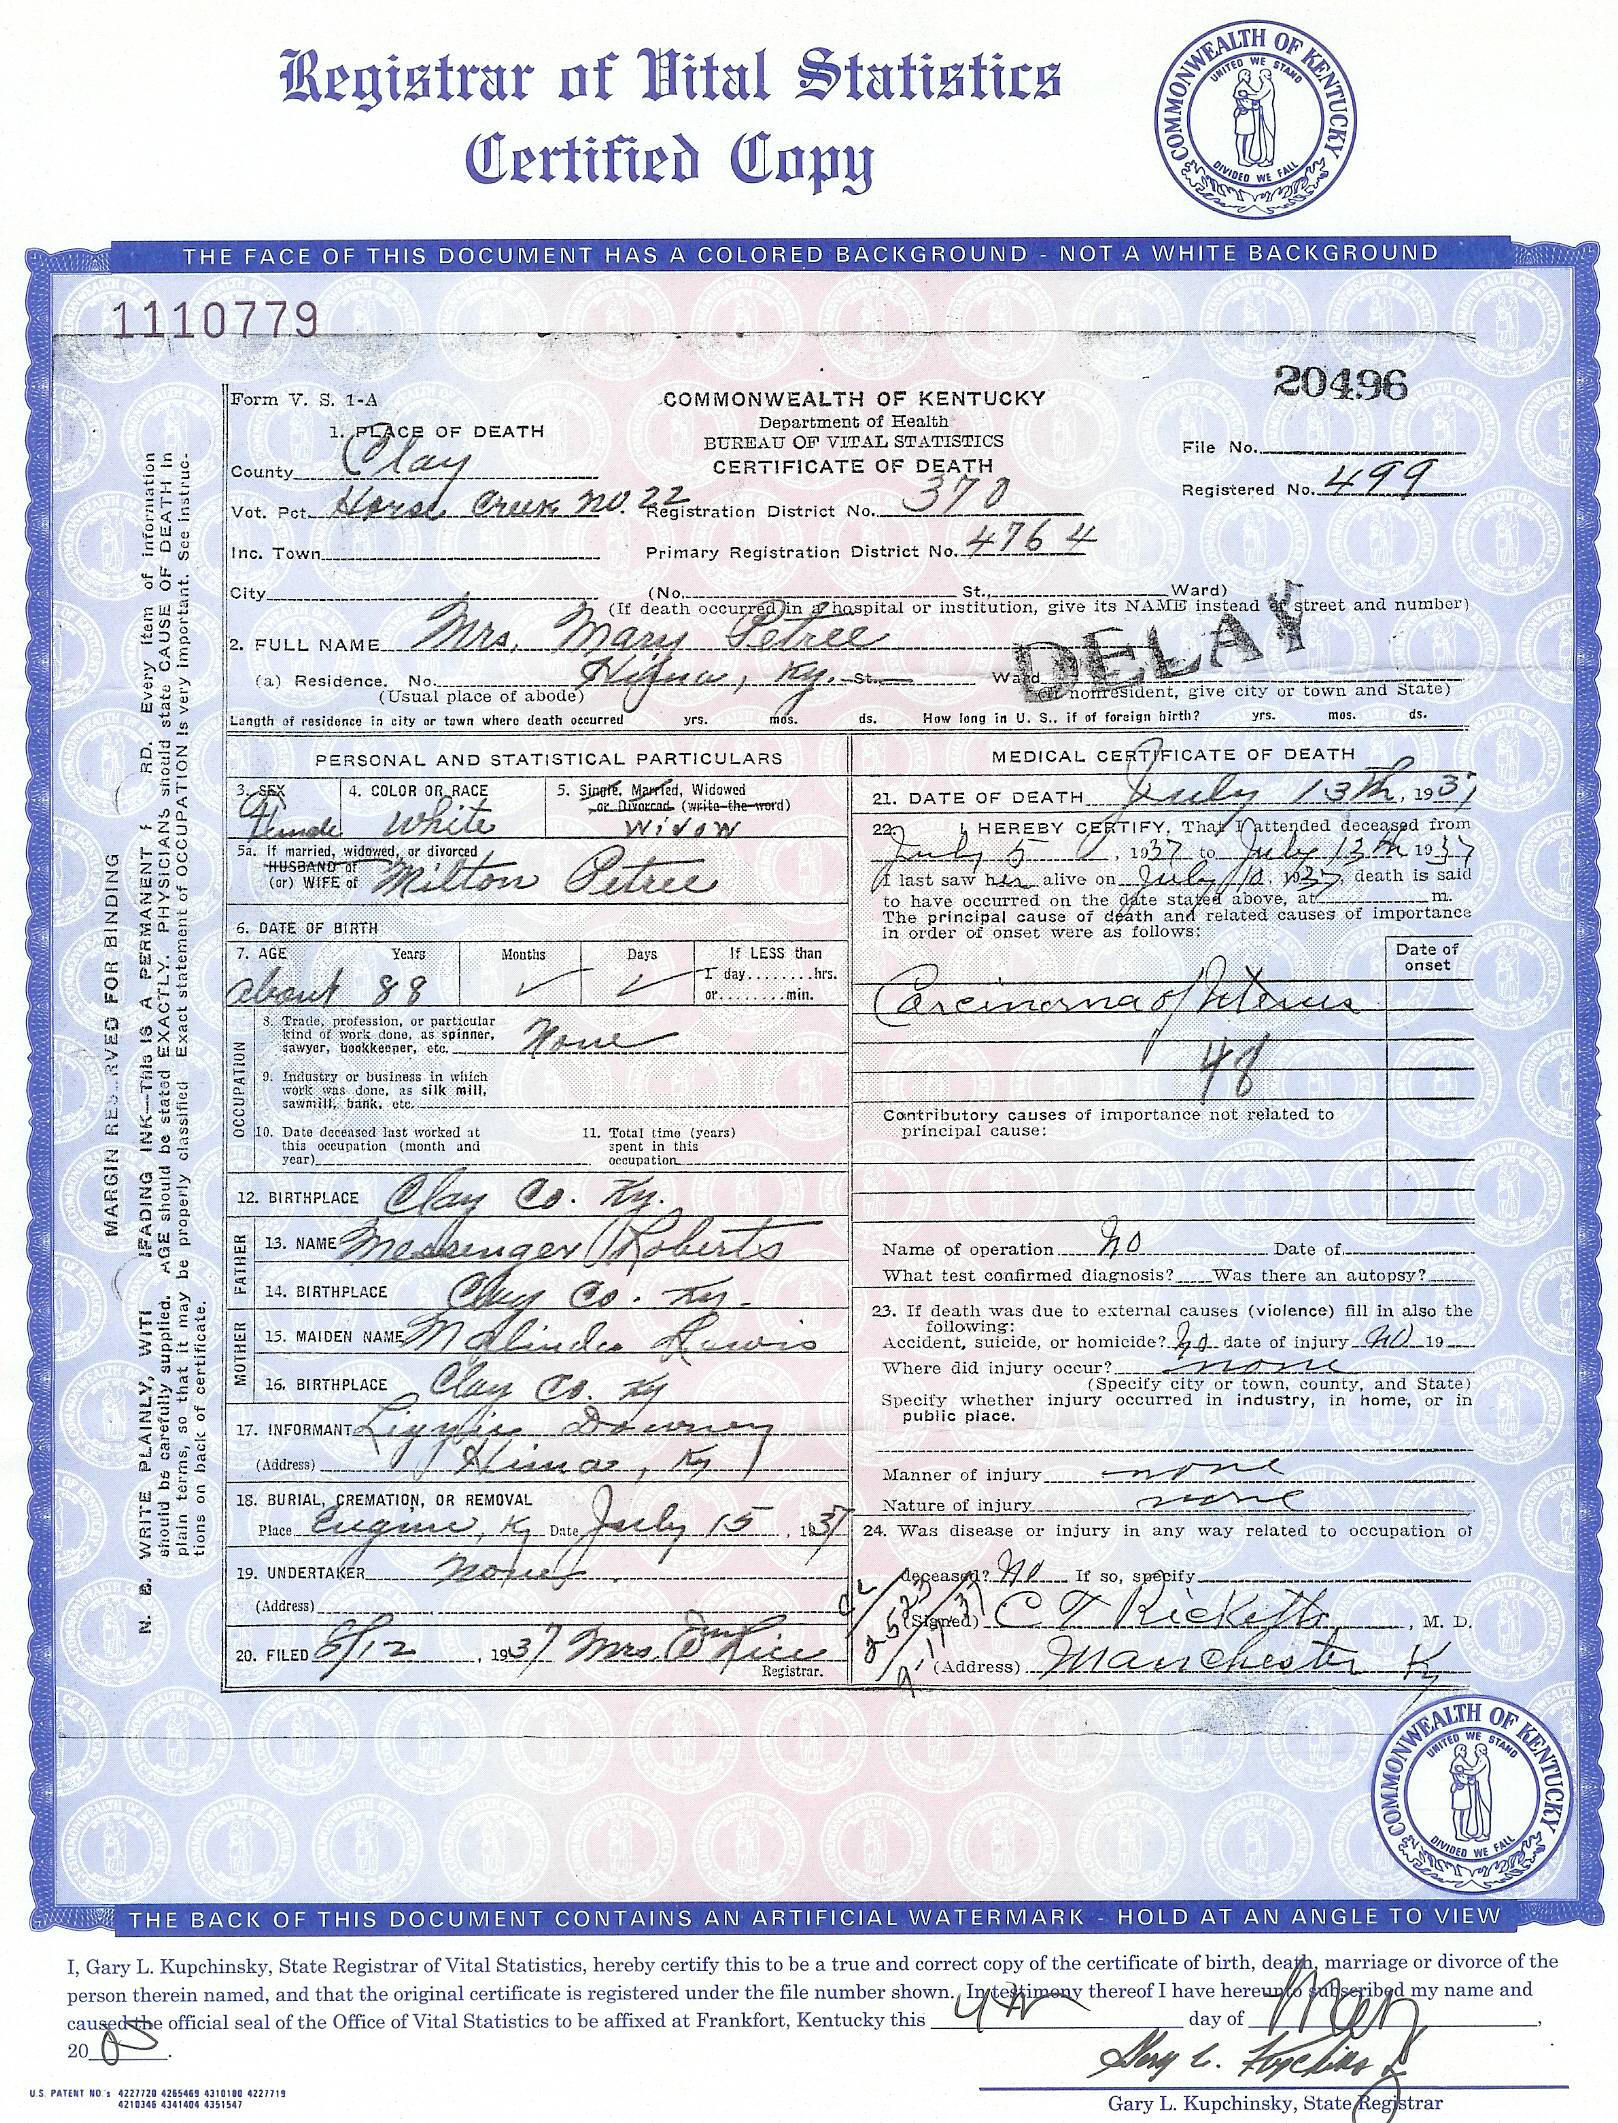 Registrar of Vital Statistics
Certified Copy
COMMONWEALTH OF KENTUCKY
UNITED WE STAND
DIVIDED WE FALL
THE FACE OF THIS DOCUMENT HAS A COLORED BACKGROUND - NOT A WHITE BACKGROUND
1110779
20496
Form V. S. 1-A
COMMONWEALTH OF KENTUCKY
Department of Health
BUREAU OF VITAL STATISTICS
CERTIFICATE OF DEATH
File No.
Registered No. 499
1. PLACE OF DEATH
County Clay
Vot. Pct. Horse Creek No. 22 Registration District No. 370
Inc. Town Primary Registration District No. 4764
City (No. St., Ward)
(If death occurred in a hospital or institution, give its NAME instead of street and number)
2. FULL NAME Mrs. Mary Petree
DELAY
(a) Residence. No. Hima, Ky. St. Ward
(Usual place of abode) (If nonresident, give city or town and State)
Length of residence in city or town where death occurred yrs. mos. ds. How long in U. S., if of foreign birth? yrs. mos. ds.
PERSONAL AND STATISTICAL PARTICULARS
3. SEX 4. COLOR OR RACE 5. Single, Married, Widowed
or Divorced (write the word)
Female White Widow
5a. If married, widowed, or divorced
HUSBAND of
(or) WIFE of Milton Petree
6. DATE OF BIRTH
7. AGE Years Months Days If LESS than
1 day........hrs.
or........min.
about 88
OCCUPATION
8. Trade, profession, or particular
kind of work done, as spinner,
sawyer, bookkeeper, etc. None
9. Industry or business in which
work was done, as silk mill,
sawmill, bank, etc.
10. Date deceased last worked at
this occupation (month and
year)
11. Total time (years)
spent in this
occupation
12. BIRTHPLACE Clay Co. Ky.
FATHER
13. NAME Messenger Roberts
14. BIRTHPLACE Clay Co. Ky.
MOTHER
15. MAIDEN NAME Malinda Lewis
16. BIRTHPLACE Clay Co. Ky
17. INFORMANT Downey
(Address) Hima, Ky
18. BURIAL, CREMATION, OR REMOVAL
Place Eugine, Ky Date July 15, 1937
19. UNDERTAKER None
(Address)
20. FILED 8/12, 1937 Mrs. Rice
Registrar.
MEDICAL CERTIFICATE OF DEATH
21. DATE OF DEATH July 13th, 1937
22. I HEREBY CERTIFY, That I attended deceased from
July 5, 1937 to July 13th 1937
I last saw her alive on July 10, 1937, death is said
to have occurred on the date stated above, at m.
The principal cause of death and related causes of importance
in order of onset were as follows:
Date of
onset
Carcinoma of Uterus
48
Contributory causes of importance not related to
principal cause:
Name of operation No Date of
What test confirmed diagnosis? Was there an autopsy?
23. If death was due to external causes (violence) fill in also the
following:
Accident, suicide, or homicide? No date of injury No 19
Where did injury occur? none
(Specify city or town, county, and State)
Specify whether injury occurred in industry, in home, or in
public place.
Manner of injury none
Nature of injury none
24. Was disease or injury in any way related to occupation of
deceased? No If so, specify
(Signed) C T Ricketts, M. D.
(Address) Manchester Ky
2523
9-11-37
MARGIN RESERVED FOR BINDING
N. B. WRITE PLAINLY, WITH UNFADING INK—THIS IS A PERMANENT RECORD. Every item of information
should be carefully supplied. AGE should be stated EXACTLY. PHYSICIANS should state CAUSE OF DEATH in
plain terms, so that it may be properly classified. Exact statement of OCCUPATION is very important. See instruc-
tions on back of certificate.
COMMONWEALTH OF KENTUCKY
UNITED WE STAND
DIVIDED WE FALL
THE BACK OF THIS DOCUMENT CONTAINS AN ARTIFICIAL WATERMARK - HOLD AT AN ANGLE TO VIEW
I, Gary L. Kupchinsky, State Registrar of Vital Statistics, hereby certify this to be a true and correct copy of the certificate of birth, death, marriage or divorce of the
person therein named, and that the original certificate is registered under the file number shown. In testimony thereof I have hereunto subscribed my name and
caused the official seal of the Office of Vital Statistics to be affixed at Frankfort, Kentucky this 4th day of May,
2005.
Gary L. Kupchinsky
Gary L. Kupchinsky, State Registrar
U.S. PATENT NO.'s 4227720 4265469 4310180 4227719
4210346 4341404 4351547